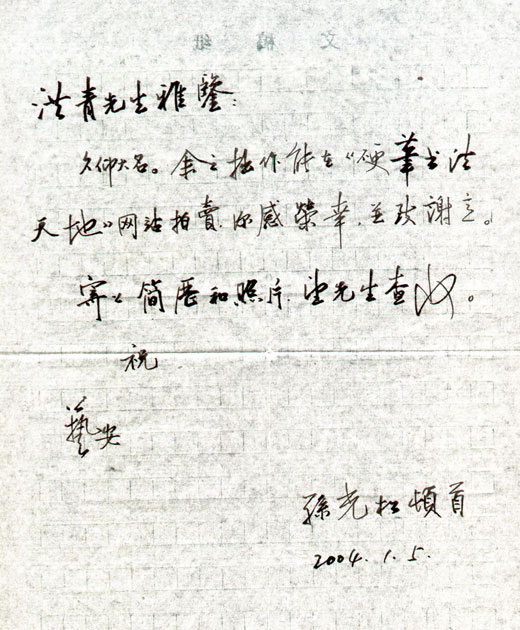 文稿纸
洪青先生雅鑒：
久仰大名。余之拙作能在“硬筆书法
天地”网站拍賣，深感榮幸，並致謝意。
寄上简歷和照片，望先生查收。
祝
藝安
孫光松頓首
2004.1.5.